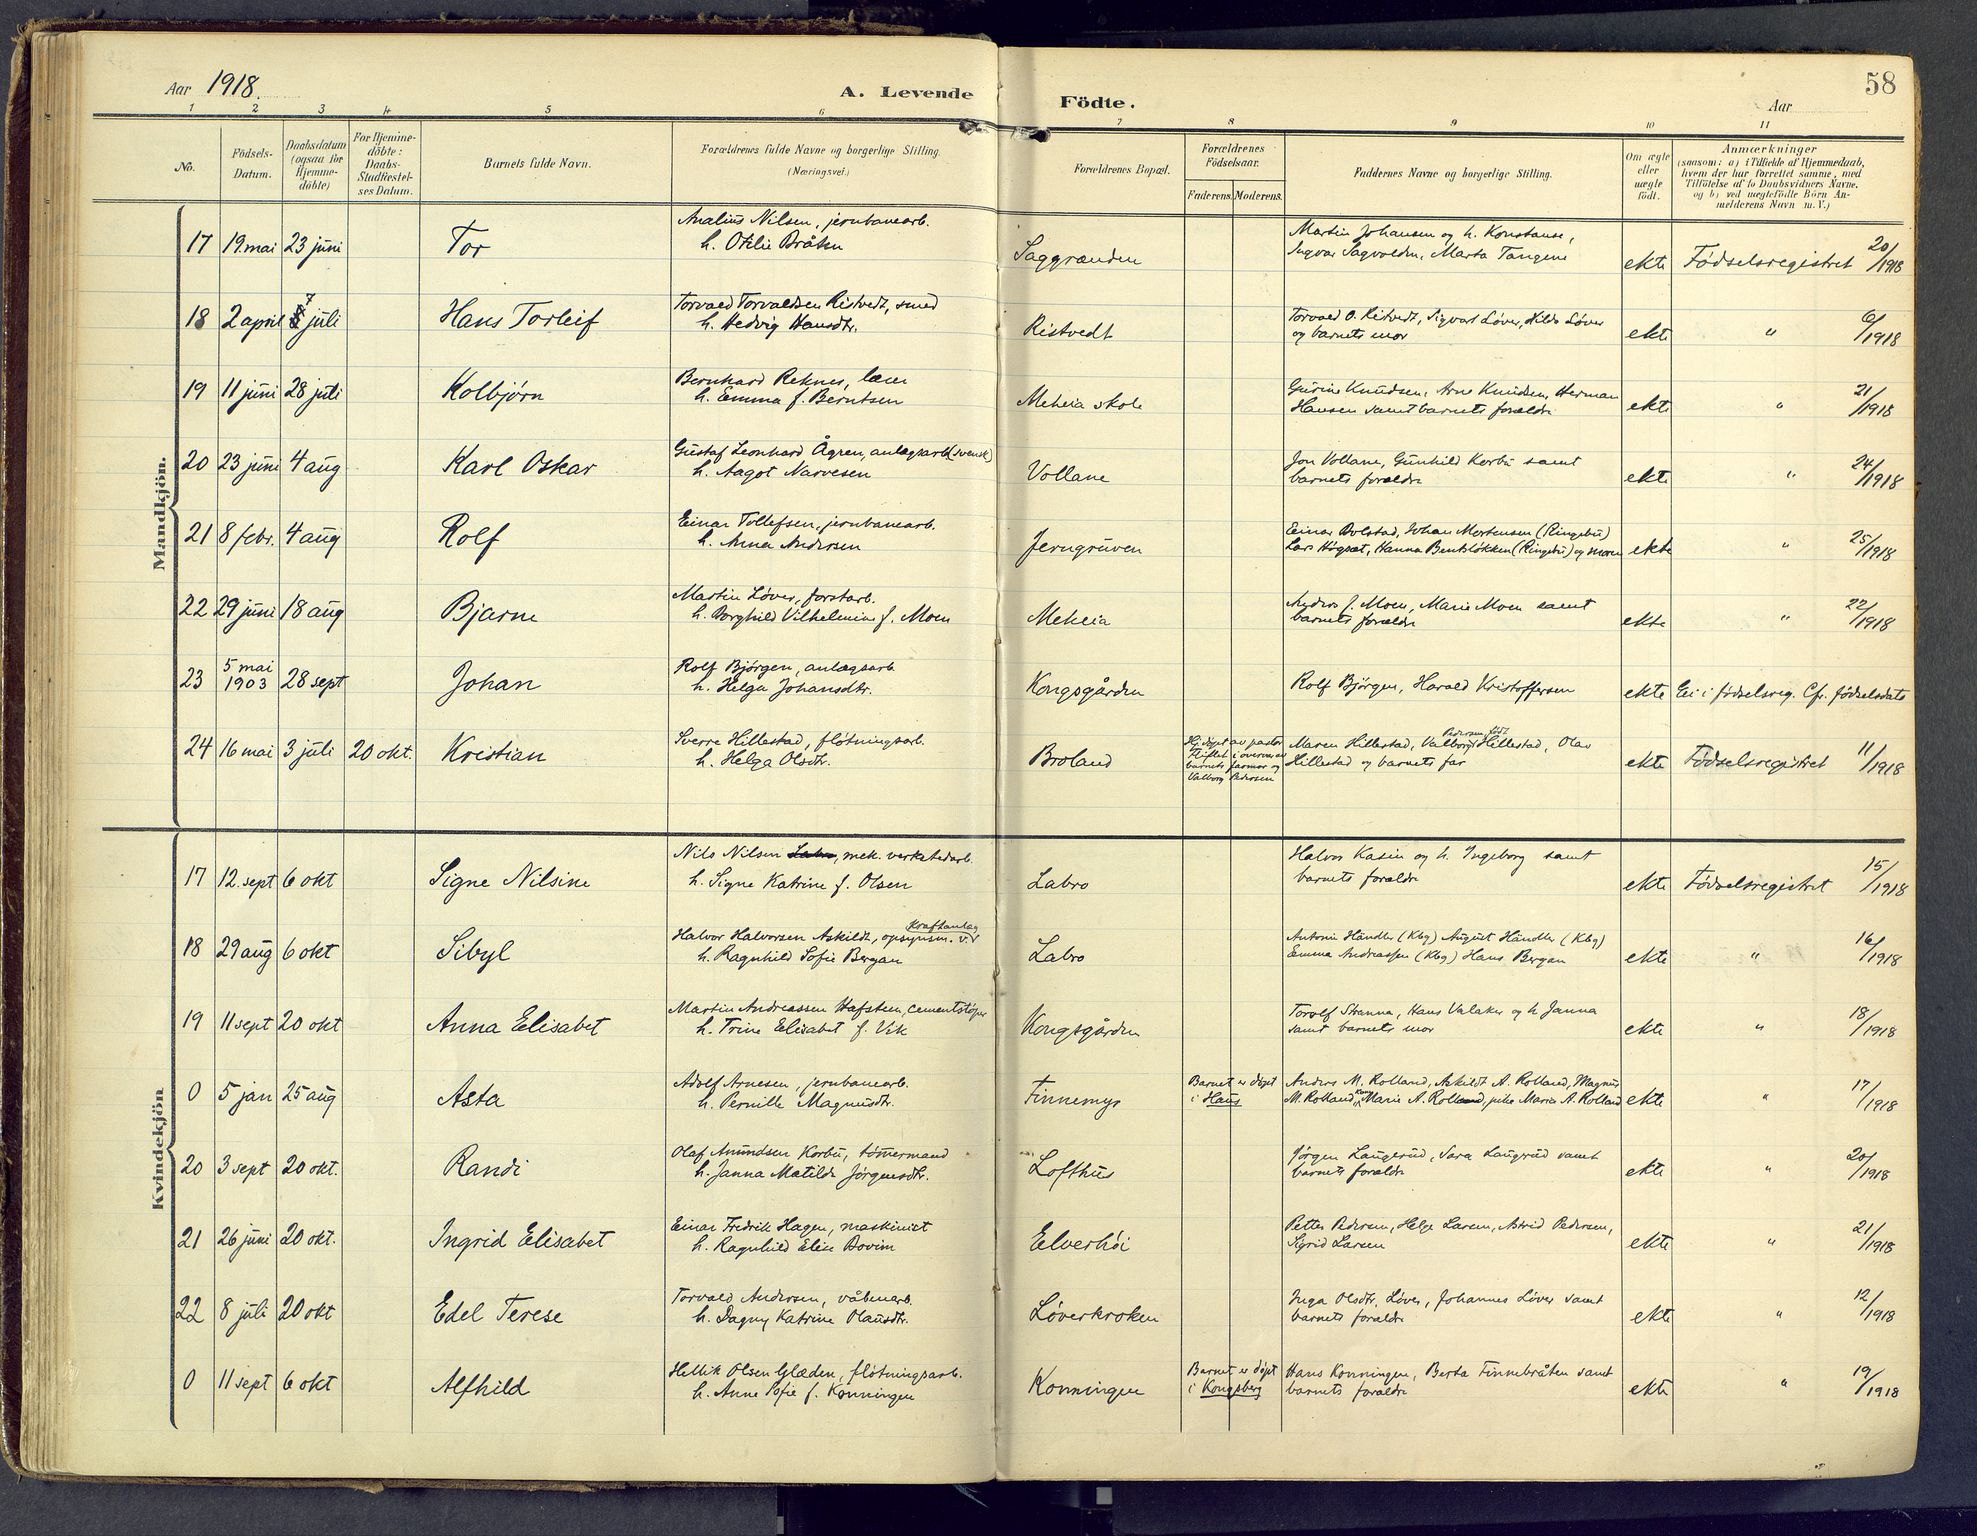 Aar 1918. A. Levende Födte. Aar 58
1 2 3 4 5 6 7 8 9 10 11
No. Födsels-Datum. Daabsdatum (ogsaa for Hjemmedöbte) For Hjemmedöbte: Daabs-Stadfæstelses Datum. Barnets fulde Navn. Forældrenes fulde Navne og borgerlige Stilling. (Næringsvei.) Forældrenes Bopæl. Forældrenes Födselsaar. Faderens. Moderens. Faddernes Navne og borgerlige Stilling. Om ægte eller uægte födt. Anmærkninger (saasom: a) i Tilfælde af Hjemmedaab, hvem der har forrettet samme, med Tilföielse af to Daabsvidners Navne, og b) ved uægtefödte Börn Anmelderens Navn m. V.)
Mandkjön.
17 19. mai 23 juni Tor Analius Nilsen, jernbanearb. Saggrænden Martin Johansen og h. Konstanse, ekte Fødselsregistret 20/1918
h. Otilie Bråten Ingvar Sagvolden, Marta Tangene
18 2 april 7 juli Hans Torleif Torvald Torvaldsen Ristvedt, smed Ristvedt Torvald O. Ristvedt, Sigvart Løver, Hilda Løver ekte " 6/1918
h. Hedvig Hansdtr. og barnets mor
19 11 juni 28 juli Kolbjørn Bernhard Reknes, lærer Meheia skole Gurine Knudsen, Arne Knudsen, Herman ekte " 21/1918
h. Emma f. Berntsen Hansen samt barnets forældre
20 23 juni 4 aug Karl Oskar Gustaf Leonhard Ågren, anlægsarb (svensk) Vollane Jon Vollane, Gunhild Korbu samt ekte " 24/1918
h. Aagot Narvesen barnets forældre
21 8 febr. 4 aug Rolf Einar Tollefsen, jernbanearb. Jerngruven Einar Bolstad, Johan Mortensen (Ringebu) ekte " 25/1918
h. Anna Andersen Lars Høgsæt, Hanna Bentsløkken (Ringebu) og moren
22 29 juni 18 aug Bjarne Martin Løver, forstarb. Meheia Anders J. Moen, Marie Moen samt ekte " 22/1918
h. Borghild Vilhelmine f. Moen barnets forældre
23 5 mai 1903 28 sept Johan Rolf Bjørgen, anlægsarb. Kongsgården Rolf Bjørgen, Harald Kristoffersen ekte Ei i fødselsreg. Cfr. fødselsdato
h. Helga Johansdtr.
24 16 mai 3 juli 20 okt. Kristian Sverre Hillestad, fløtningsarb. Broland Hj.døpt av pastor Maren Hillestad, Valborg Pedersen født Hillestad, Olav ekte Fødselsregistret 11/1918
h. Helga Olsdtr. i overvær av barnets farmor og Valborg Pedersen Hillestad og barnets far
Kvindekjön
17 12. sept 6 okt Signe Nilsine Nils Nilsen Labro, mek. verkstedarb. Labro Halvor Kasin og h. Ingeborg samt ekte Fødselsregistret 15/1918
h. Signe Katrine f. Olsen barnets forældre
18 29 aug 6 okt Sibyl Halvor Halvorsen Askildt, opsynsm. v. Kraftanlæg Labro Antonie Händler (Kbg) August Händler (Kbg) ekte " 16/1918
h. Ragnhild Sofie Bergan Emma Andreassen (Kbg) Hans Bergan
19 11 sept 20 okt Anna Elisabet Martin Andreassen Hafsten, cementstøper Kongsgården Torolf Stranna, Hans Valaker og h. Janna ekte " 18/1918
h. Trine Elisabet f. Vik samt barnets mor
0 5 jan 25 aug Asta Adolf Arnesen, jernbanearb. Finnemyr Barnet er døpt Anders M. Rolland, Askildt A. Rolland, Magnus ekte " 17/1918
h. Pernille Magnusdtr. i Haus M. Rolland, kone Marie A. Rolland, pike Marie A. Rolland
20 3 sept 20 okt. Randi Olaf Amundsen Korbu, tømmermand Lofthus Jørgen Laugerud, Sara Laugerud samt ekte " 20/1918
h. Janna Matilde Jørgensdtr. barnets forældre
21 26 juni 20 okt. Ingrid Elisabet Einar Fredrik Hagen, maskinist Elverhøi Petter Pedersen, Helge Larsen, Astrid Pedersen, ekte " 21/1918
h. Ragnhild Elise Bovim Sigrid Larsen
22 8 juli 20 okt Edel Terese Torvald Andersen, våbenarb. Løverkroken Inga Olsdtr. Løver, Johannes Løver samt ekte " 12/1918
h. Dagny Katrine Olausdtr. barnets forældre
0 11 sept 6 okt Alfhild Hellik Olsen Glæden, fløtningsarb. Konningen Barnet er døpt Hans Konningen, Berta Finnebråten samt ekte " 19/1918
h. Anne Sofie f. Konningen i Kongsberg barnets forældre